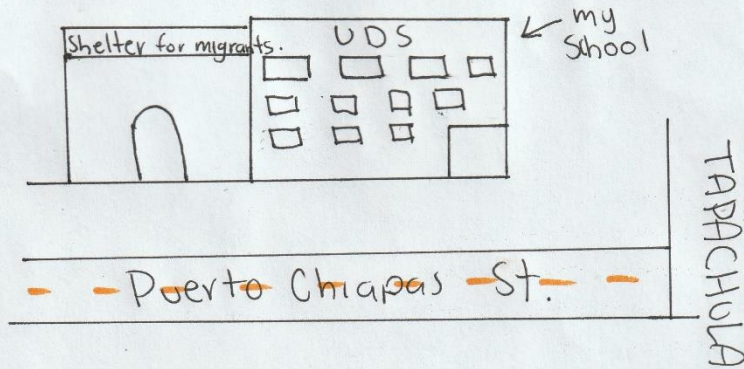 Shelter for migrants.
UDS
my
School
Puerto Chiapas St.
TAPACHULA